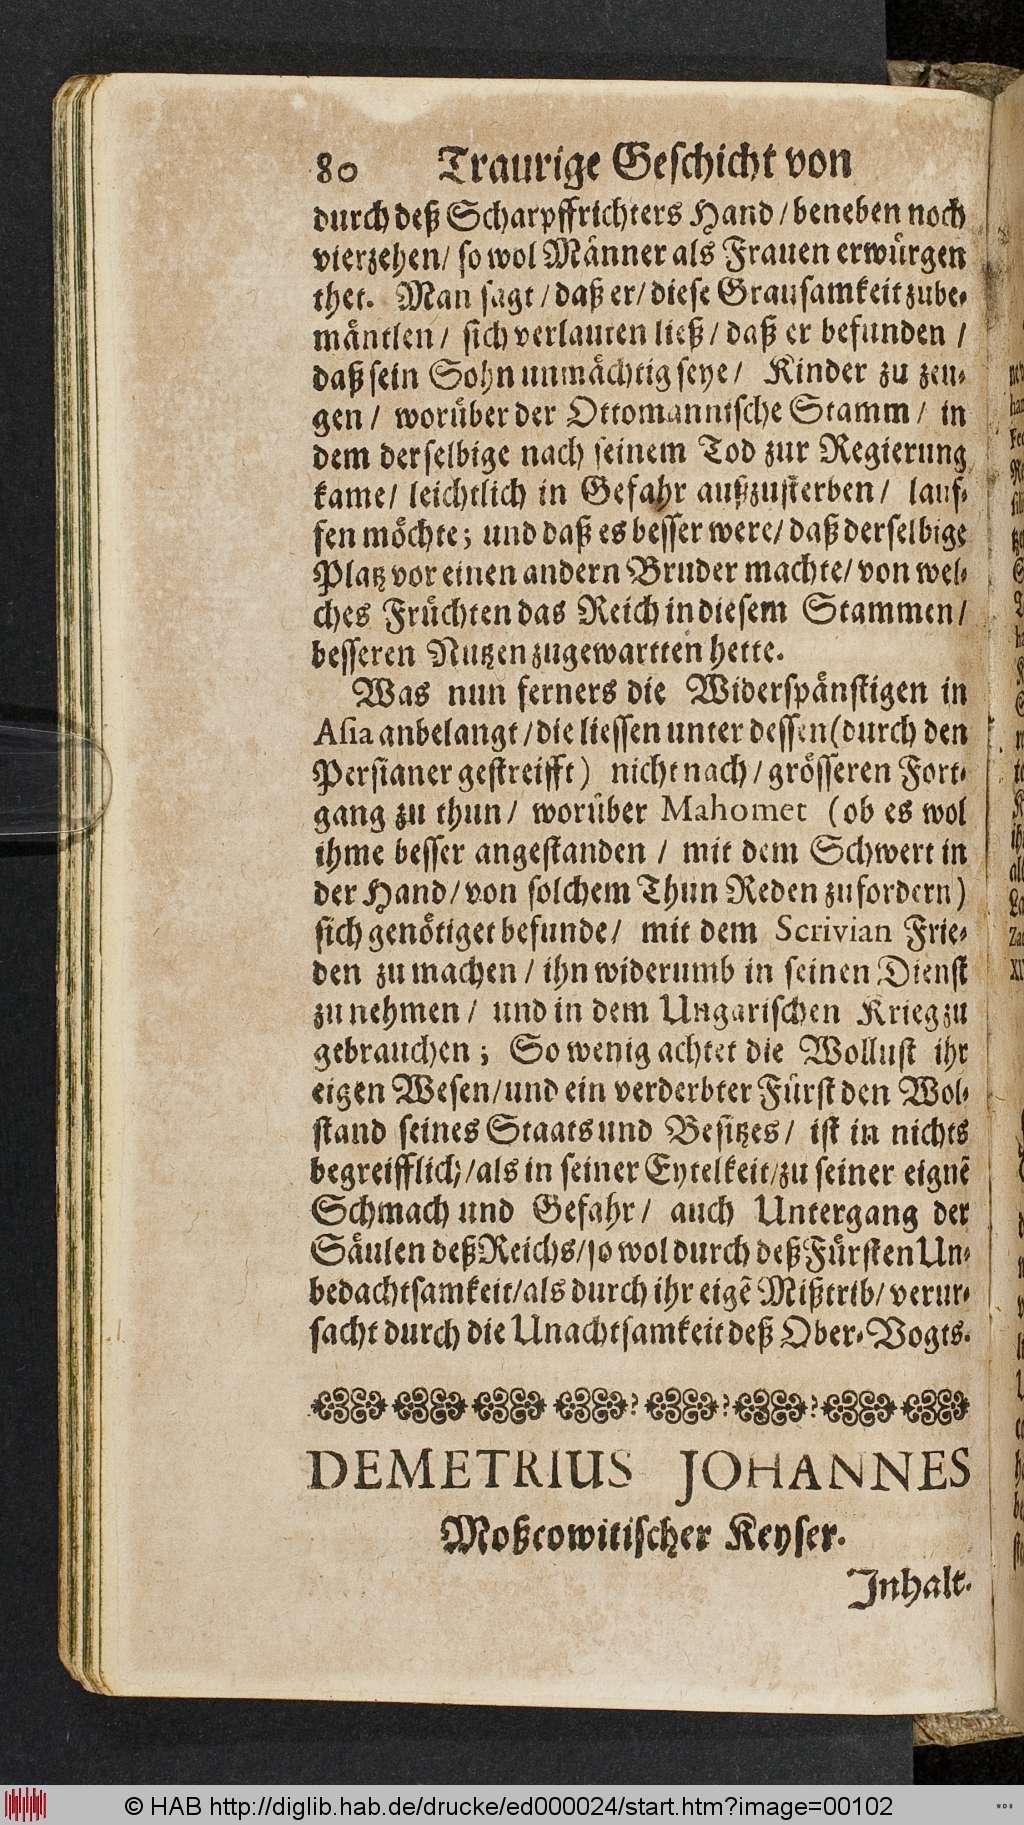 80 Traurige Geschicht von
durch deß Scharpffrichters Hand / beneben noch
vierzehen / so wol Männer als Frauen erwürgen
thet. Man sagt / daß er / diese Grausamkeit zube-
mäntlen / sich verlauten ließ / daß er befunden /
daß sein Sohn unmächtig seye / Kinder zu zeu-
gen / worüber der Ottomannische Stamm / in
dem derselbige nach seinem Tod zur Regierung
kame / leichtlich in Gefahr außzusterben / lauf-
fen möchte; und daß es besser were / daß derselbige
Platz vor einen andern Bruder machte / von wel-
ches Früchten das Reich in diesem Stammen /
besseren Nutzen zugewartten hette.
Was nun ferners die Widerspänstigen in
Asia anbelangt / die liessen unter dessen (durch den
Persianer gestreifft) nicht nach / grösseren Fort-
gang zu thun / worüber Mahomet (ob es wol
ihme besser angestanden / mit dem Schwert in
der Hand / von solchem Thun Reden zufordern)
sich genötiget befunde / mit dem Scrivian Frie-
den zu machen / ihn widerumb in seinen Dienst
zu nehmen / und in dem Ungarischen Krieg zu
gebrauchen; So wenig achtet die Wollust ihr
eigen Wesen / und ein verderbter Fürst den Wol-
stand seines Staats und Besitzes / ist in nichts
begreifflich / als in seiner Eytelkeit / zu seiner eignē
Schmach und Gefahr / auch Untergang der
Säulen deß Reichs / so wol durch deß Fürsten Un-
bedachtsamkeit / als durch ihr eigē Mißtrib / verur-
sacht durch die Unachtsamkeit deß Ober-Vogts.
DEMETRIUS JOHANNES
Moßcowitischer Keyser.
Inhalt.
© HAB http://diglib.hab.de/drucke/ed000024/start.htm?image=00102